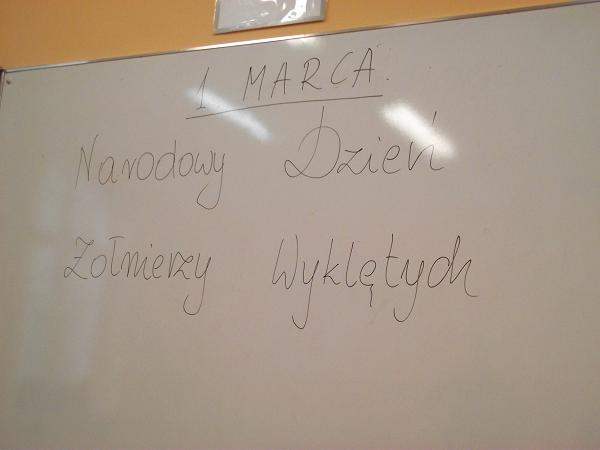 1 MARCA.
Narodowy Dzień
Żołnierzy Wyklętych